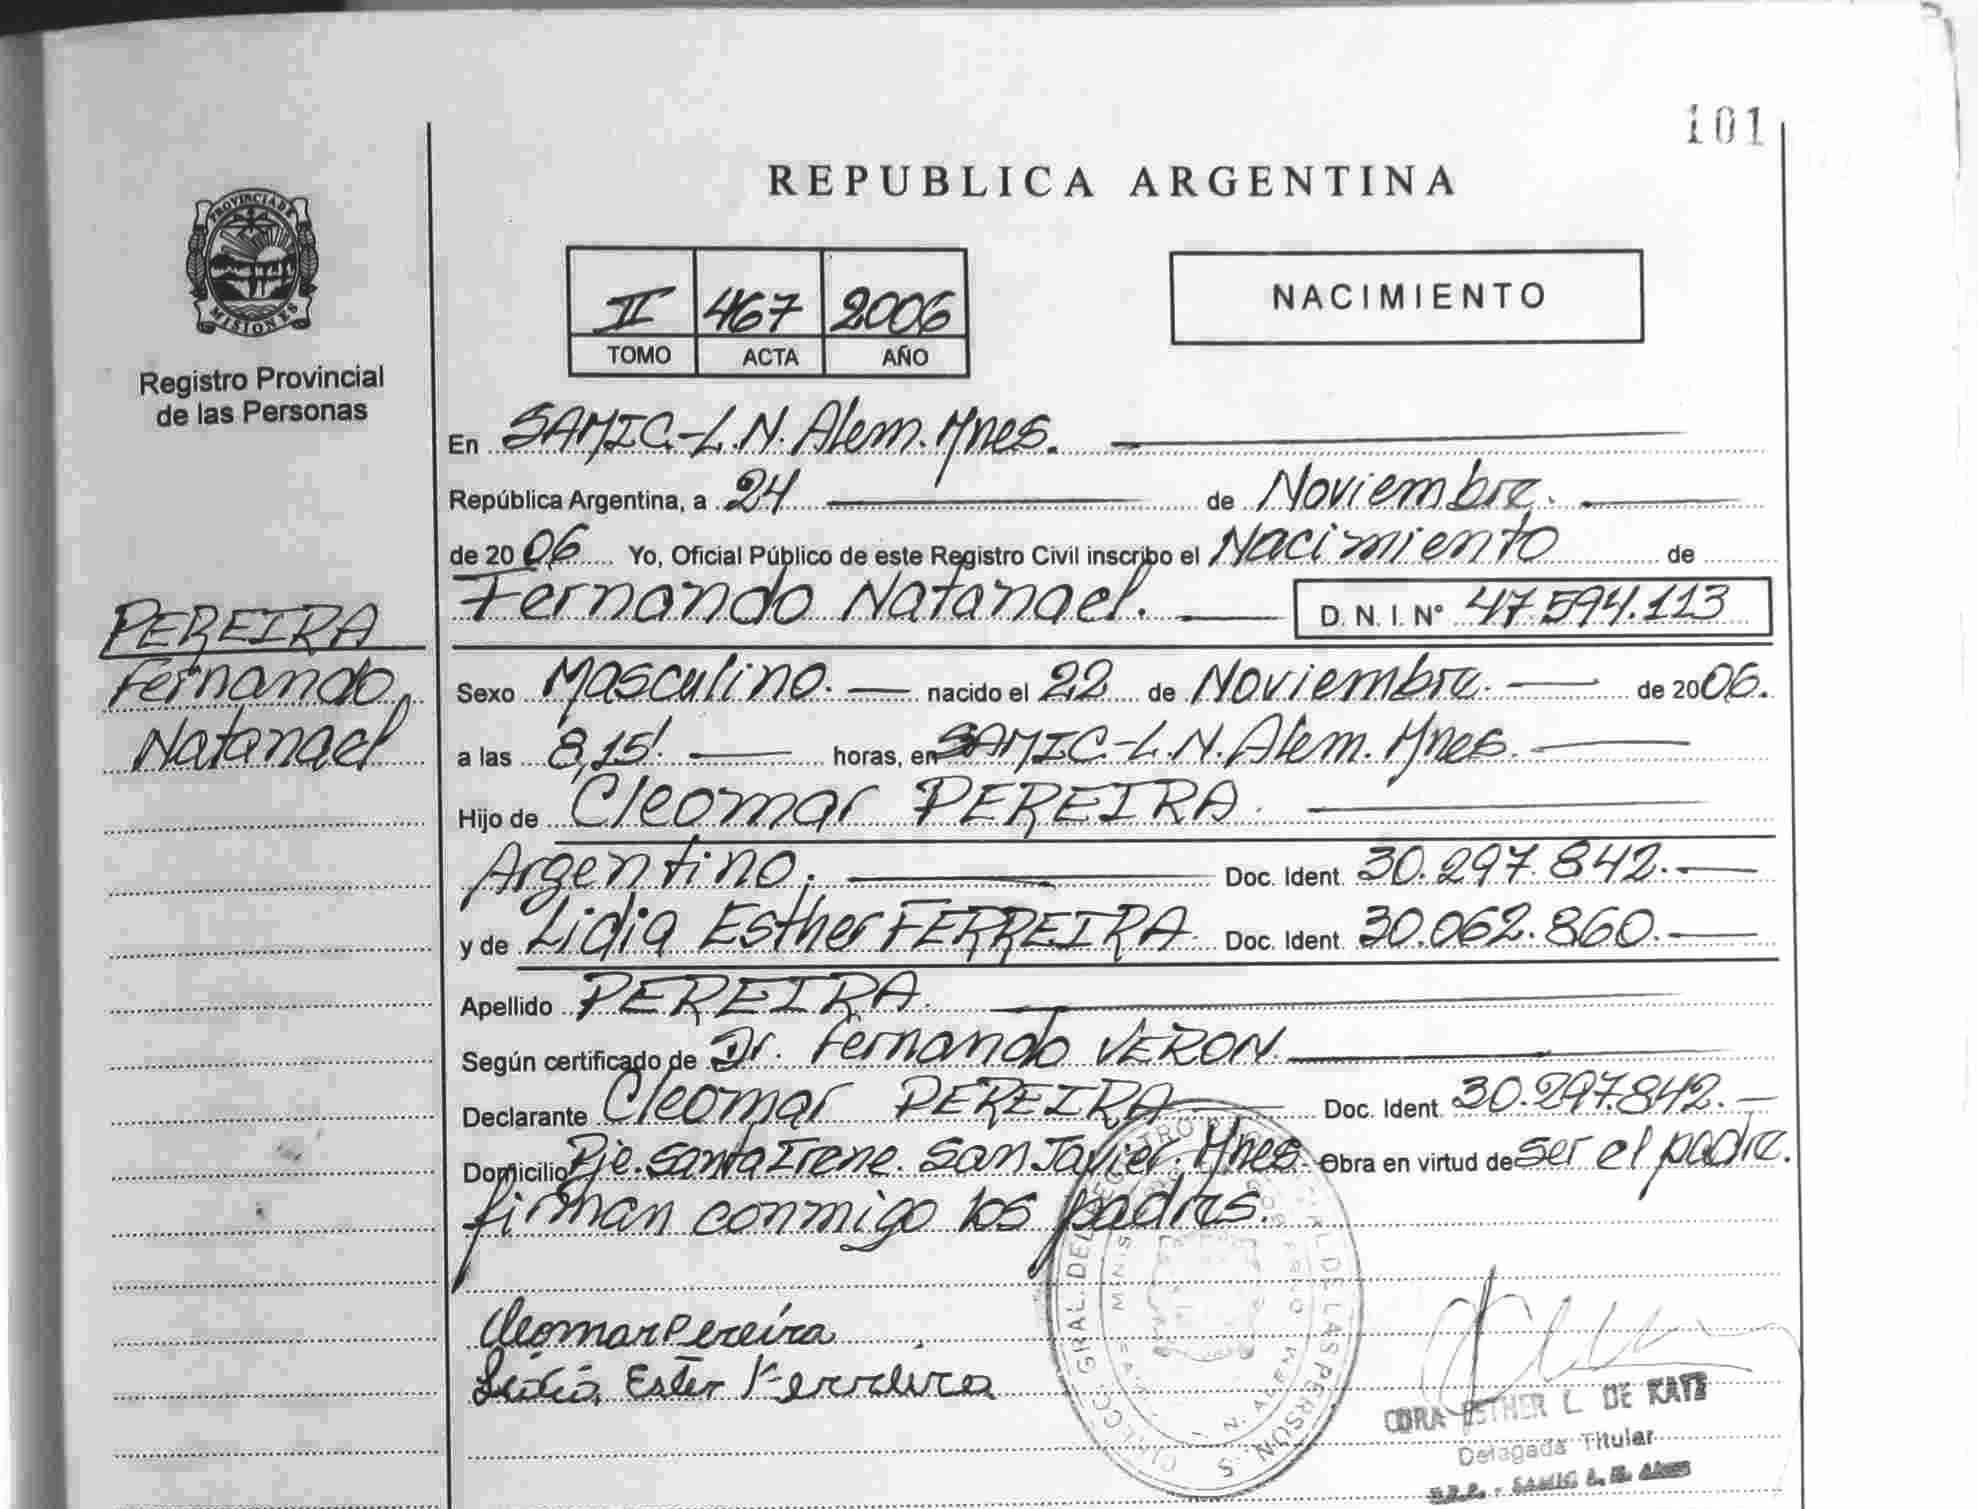 101
REPUBLICA ARGENTINA
PROVINCIA DE
MISIONES
Registro Provincial
de las Personas
II 467 2006
TOMO ACTA AÑO
NACIMIENTO
PEREIRA
Fernando
Natanael
En SAMIC.-L.N. Alem. Mnes.
República Argentina, a 24 de Noviembre.
de 20 06 Yo, Oficial Público de este Registro Civil inscribo el Nacimiento de
Fernando Natanael. D. N. I. Nº 47.594.113
Sexo Masculino. nacido el 22 de Noviembre. de 2006.
a las 8,15'. horas, en SAMIC-L.N. Alem. Mnes.
Hijo de Cleomar PEREIRA.
Argentino. Doc. Ident. 30.297.842.
y de Lidia Esther FERREIRA. Doc. Ident. 30.062.860.
Apellido PEREIRA.
Según certificado de Dr. Fernando VERON.
Declarante Cleomar PEREIRA Doc. Ident. 30.297.842.
Domicilio Pje. Santa Irene. San Javier. Mnes. Obra en virtud de ser el padre.
firman conmigo los padres.
Cleomar Pereira
Lidia Ester Ferreira
ESTHER L. DE KATZ
Delegada Titular
SAMIC L. N. ALEM